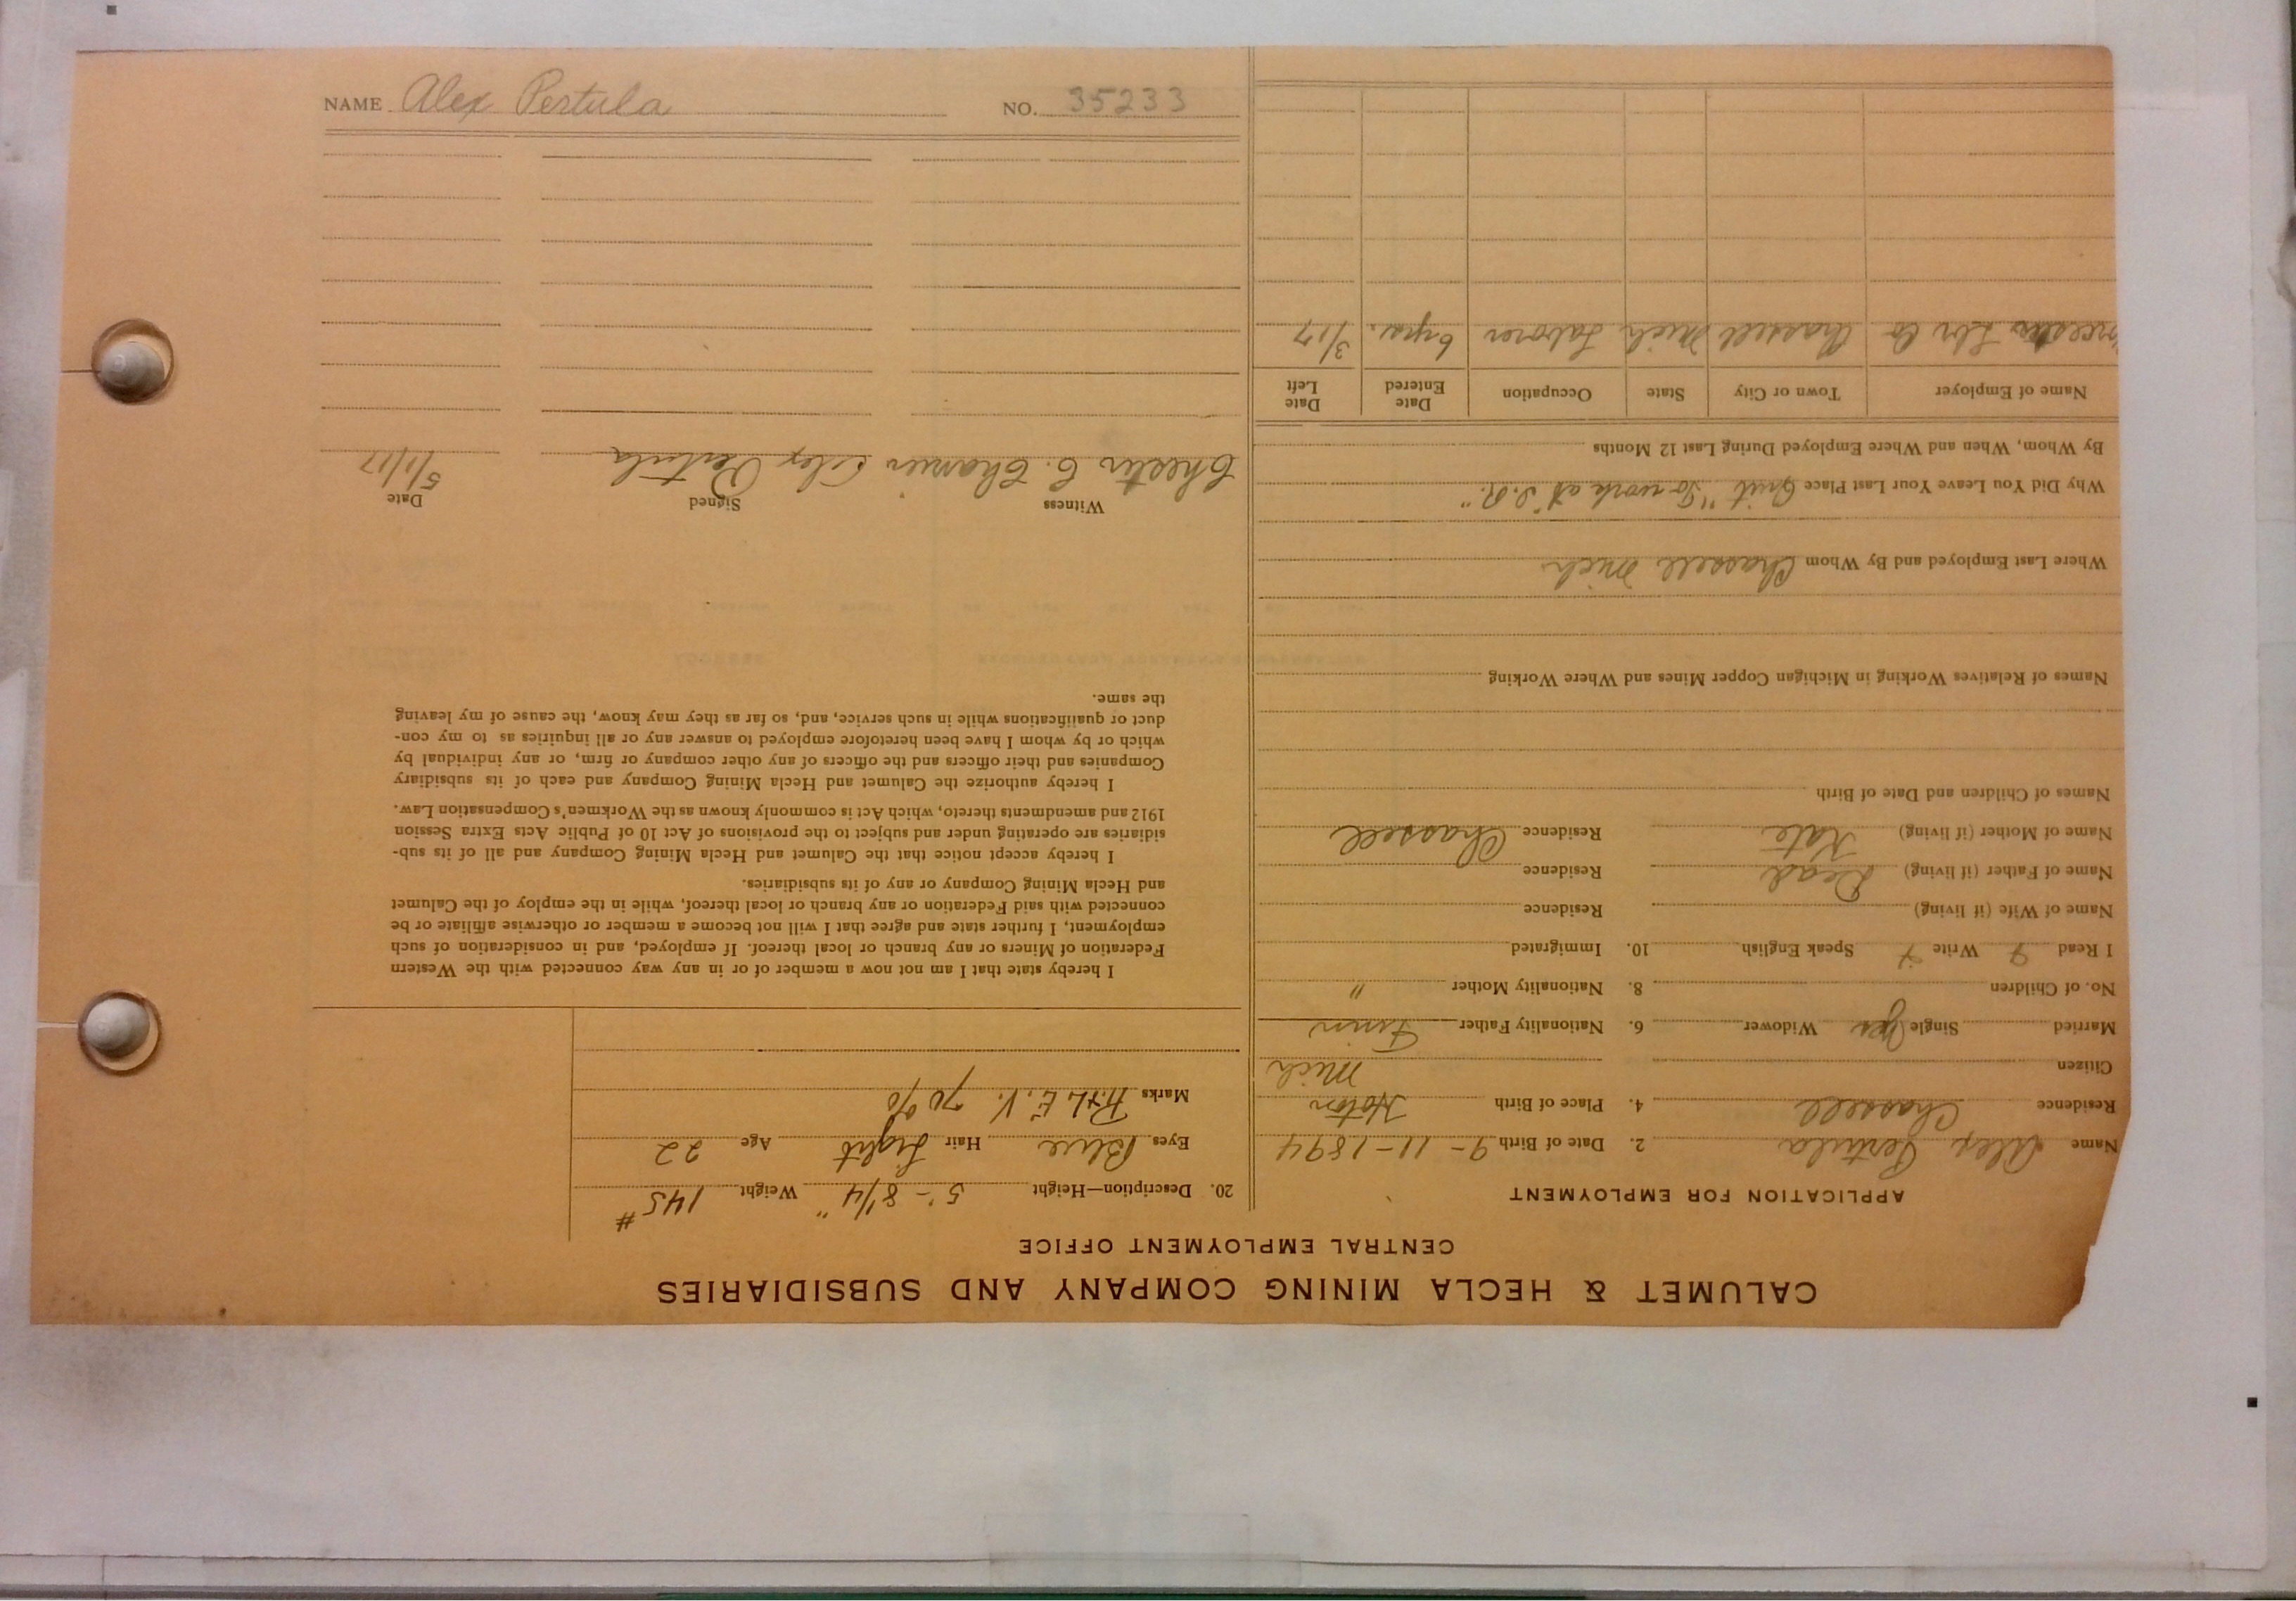 NAME Alex Pertula NO. 35233
CALUMET & HECLA MINING COMPANY AND SUBSIDIARIES
CENTRAL EMPLOYMENT OFFICE
APPLICATION FOR EMPLOYMENT
Name Alex Pertula 2. Date of Birth 9-11-1894
Residence Chassell 4. Place of Birth Hoton
Citizen Mich
Married Single Yes Widower 6. Nationality Father Finn
No. of Children 8. Nationality Mother "
I Read Write Speak English 10. Immigrated
Name of Wife (if living) Residence
Name of Father (if living) Dead Residence
Name of Mother (if living) Kate Residence Chassell
Names of Children and Date of Birth
Names of Relatives Working in Michigan Copper Mines and Where Working
Where Last Employed and By Whom Chassell Mich
Why Did You Leave Your Last Place Quit "To work at I.R."
By Whom, When and Where Employed During Last 12 Months
Name of Employer Town or City State Occupation Date Entered Date Left
Lbr Co Chassell Mich Laborer 6 yrs. 3/17
20. Description—Height 5'-8 1/4" Weight 145#
Eyes Blue Hair Light Age 22
Marks R.+L.E.V. 70%
I hereby state that I am not now a member of or in any way connected with the Western
Federation of Miners or any branch or local thereof. If employed, and in consideration of such
employment, I further state and agree that I will not become a member or otherwise affiliate or be
connected with said Federation or any branch or local thereof, while in the employ of the Calumet
and Hecla Mining Company or any of its subsidiaries.
I hereby accept notice that the Calumet and Hecla Mining Company and all of its sub-
sidiaries are operating under and subject to the provisions of Act 10 of Public Acts Extra Session
1912 and amendments thereto, which Act is commonly known as the Workmen's Compensation Law.
I hereby authorize the Calumet and Hecla Mining Company and each of its subsidiary
Companies and their officers and the officers of any other company or firm, or any individual by
which or by whom I have been heretofore employed to answer any or all inquiries as to my con-
duct or qualifications while in such service, and, so far as they may know, the cause of my leaving
the same.
Witness Signed Date
Chester C. Alex Pertula 5/1/17